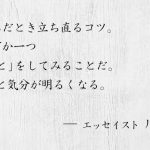 だとき立ち直るコツ。
か一つ
と」をしてみることだ。
と気分が明るくなる。
― エッセイスト